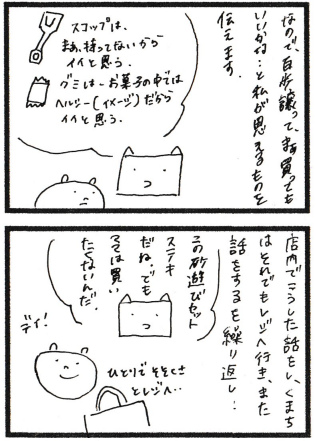 なので、百歩譲って、まぁ買っても
いいかな…と私が思えるものを
伝えます。
スコップは、
まぁ、持ってないから
イイと思う。
グミは…お菓子の中では
ヘルシー(イメージ)だから
イイと思う。
店内でこうした話をし、くまち
はそれでもレジへ行き、また
話をするを繰り返し…
この砂遊びセット
ステキ
だね。でも
ママは買い
たくないんだ。
デイ!
ひとりで そそくさ
とレジへ…